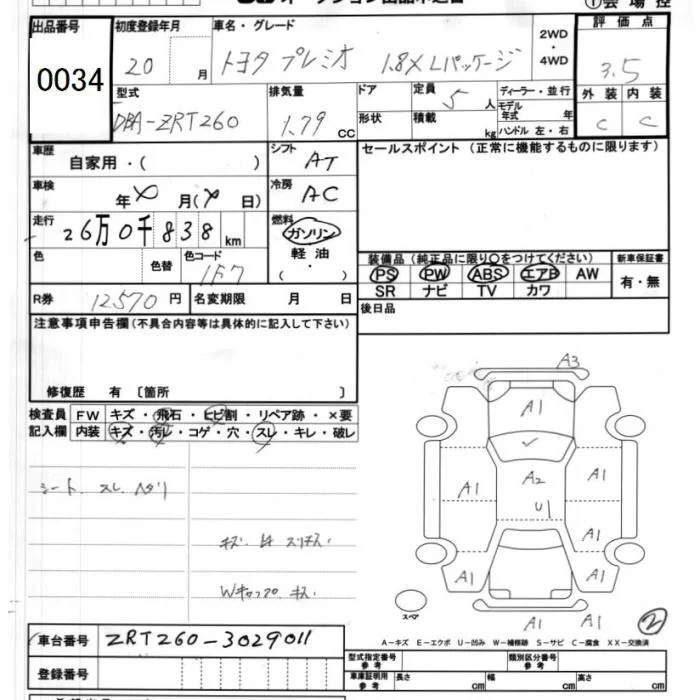 出品番号 初度登録年月 車名・グレード 2WD・4WD 評価点
0034 20 月 トヨタ プレミオ 1.8X Lパッケージ 3.5
型式 排気量 ドア 定員 5 人 ディーラー・並行 外装 内装
DBA-ZRT260 1.79 CC 形状 積載 kg モデル年式 年 ハンドル 左・右 C C
車歴 自家用・( ) シフト AT セールスポイント (正常に機能するものに限ります)
車検 年 月( 日) 冷房 AC
走行 26万0千838 km 燃料 ガソリン
軽油
・
( )
色 色替 色コード 1F7 装備品 (純正品に限り○をつけてください) 新車保証書
PS PW ABS エアB AW 有・無
SR ナビ TV カワ
R券 12570 円 名変期限 月 日 後日品
注意事項申告欄(不具合内容等は具体的に記入して下さい)
修復歴 有 〔箇所 〕
検査員 FW キズ・飛石・ヒビ割・リペア跡・×要
記入欄 内装 キズ・汚レ・コゲ・穴・スレ・キレ・破レ
シート スレ ヘタリ
Wキャップ キズ
A3
A1
A2
U1
A1 A1
A1
A1 A1
A1 A1
スペア
2
A-キズ E-エクボ U-凹み W-補修跡 S-サビ C-腐食 XX-交換済
車台番号 ZRT260-3029011
登録番号
型式指定番号 参考 類別区分番号 参考
車庫証明用 参考 長さ cm 幅 cm 高さ cm